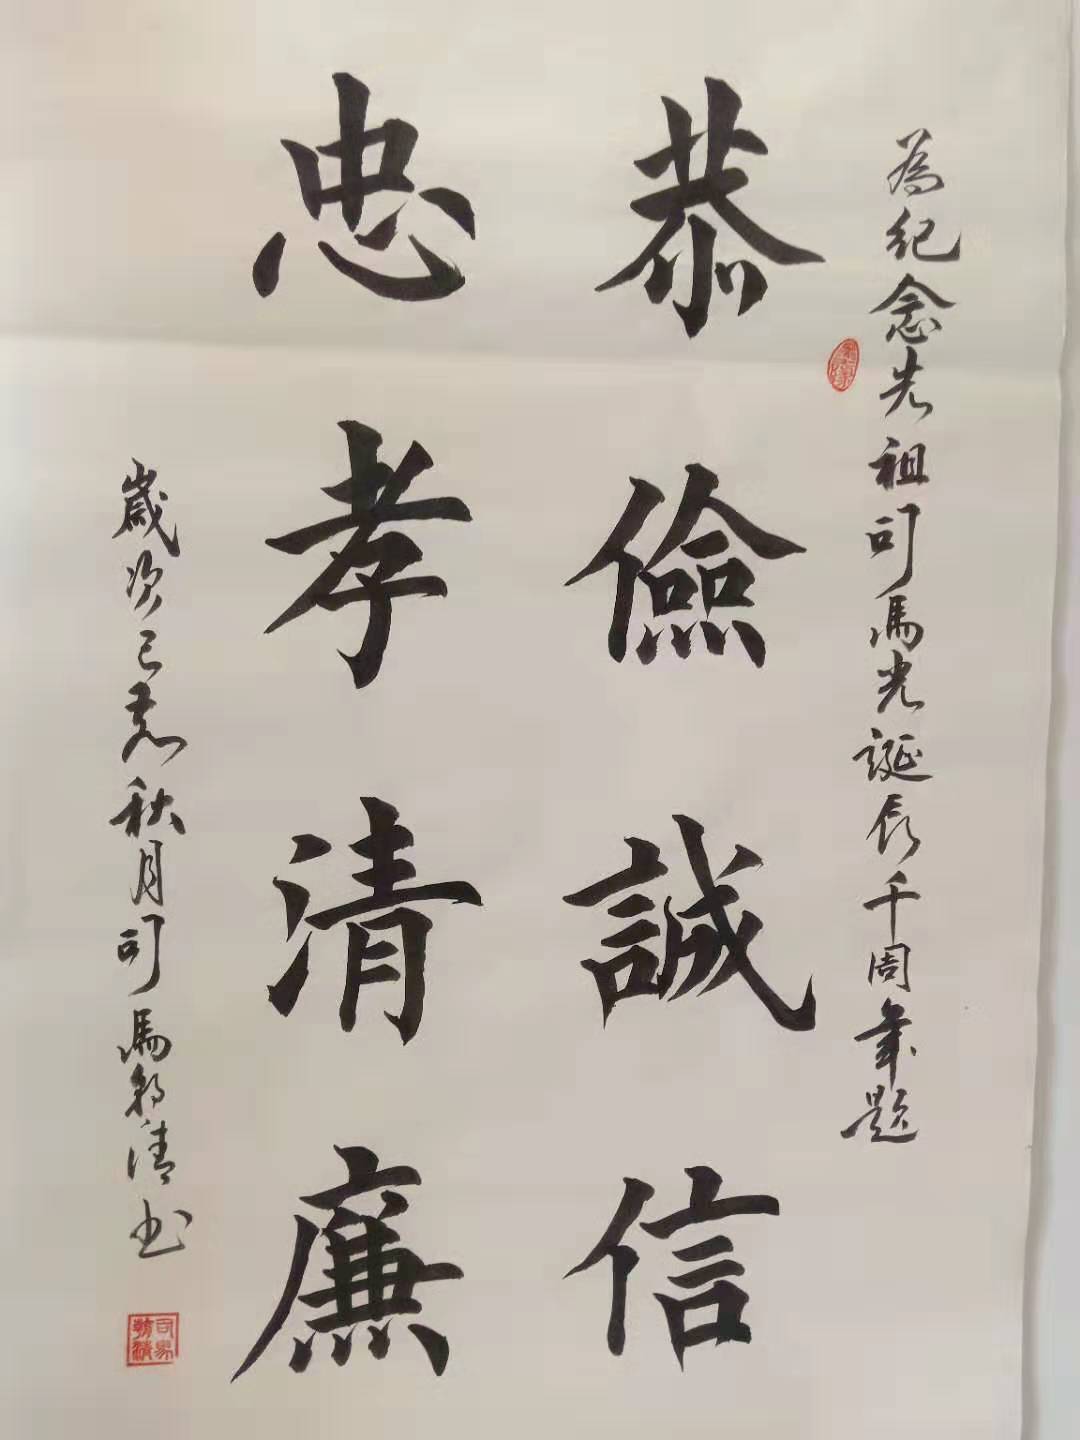 為紀念先祖司馬光誕辰千周年題
恭儉誠信
忠孝清廉
歲次己亥秋月司馬清书